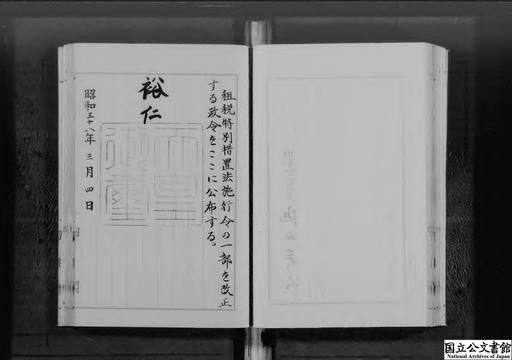 租税特別措置法施行令の一部を改正
する政令をここに公布する。
裕仁
天皇
御璽
昭和三十八年三月四日
国立公文書館
National Archives of Japan